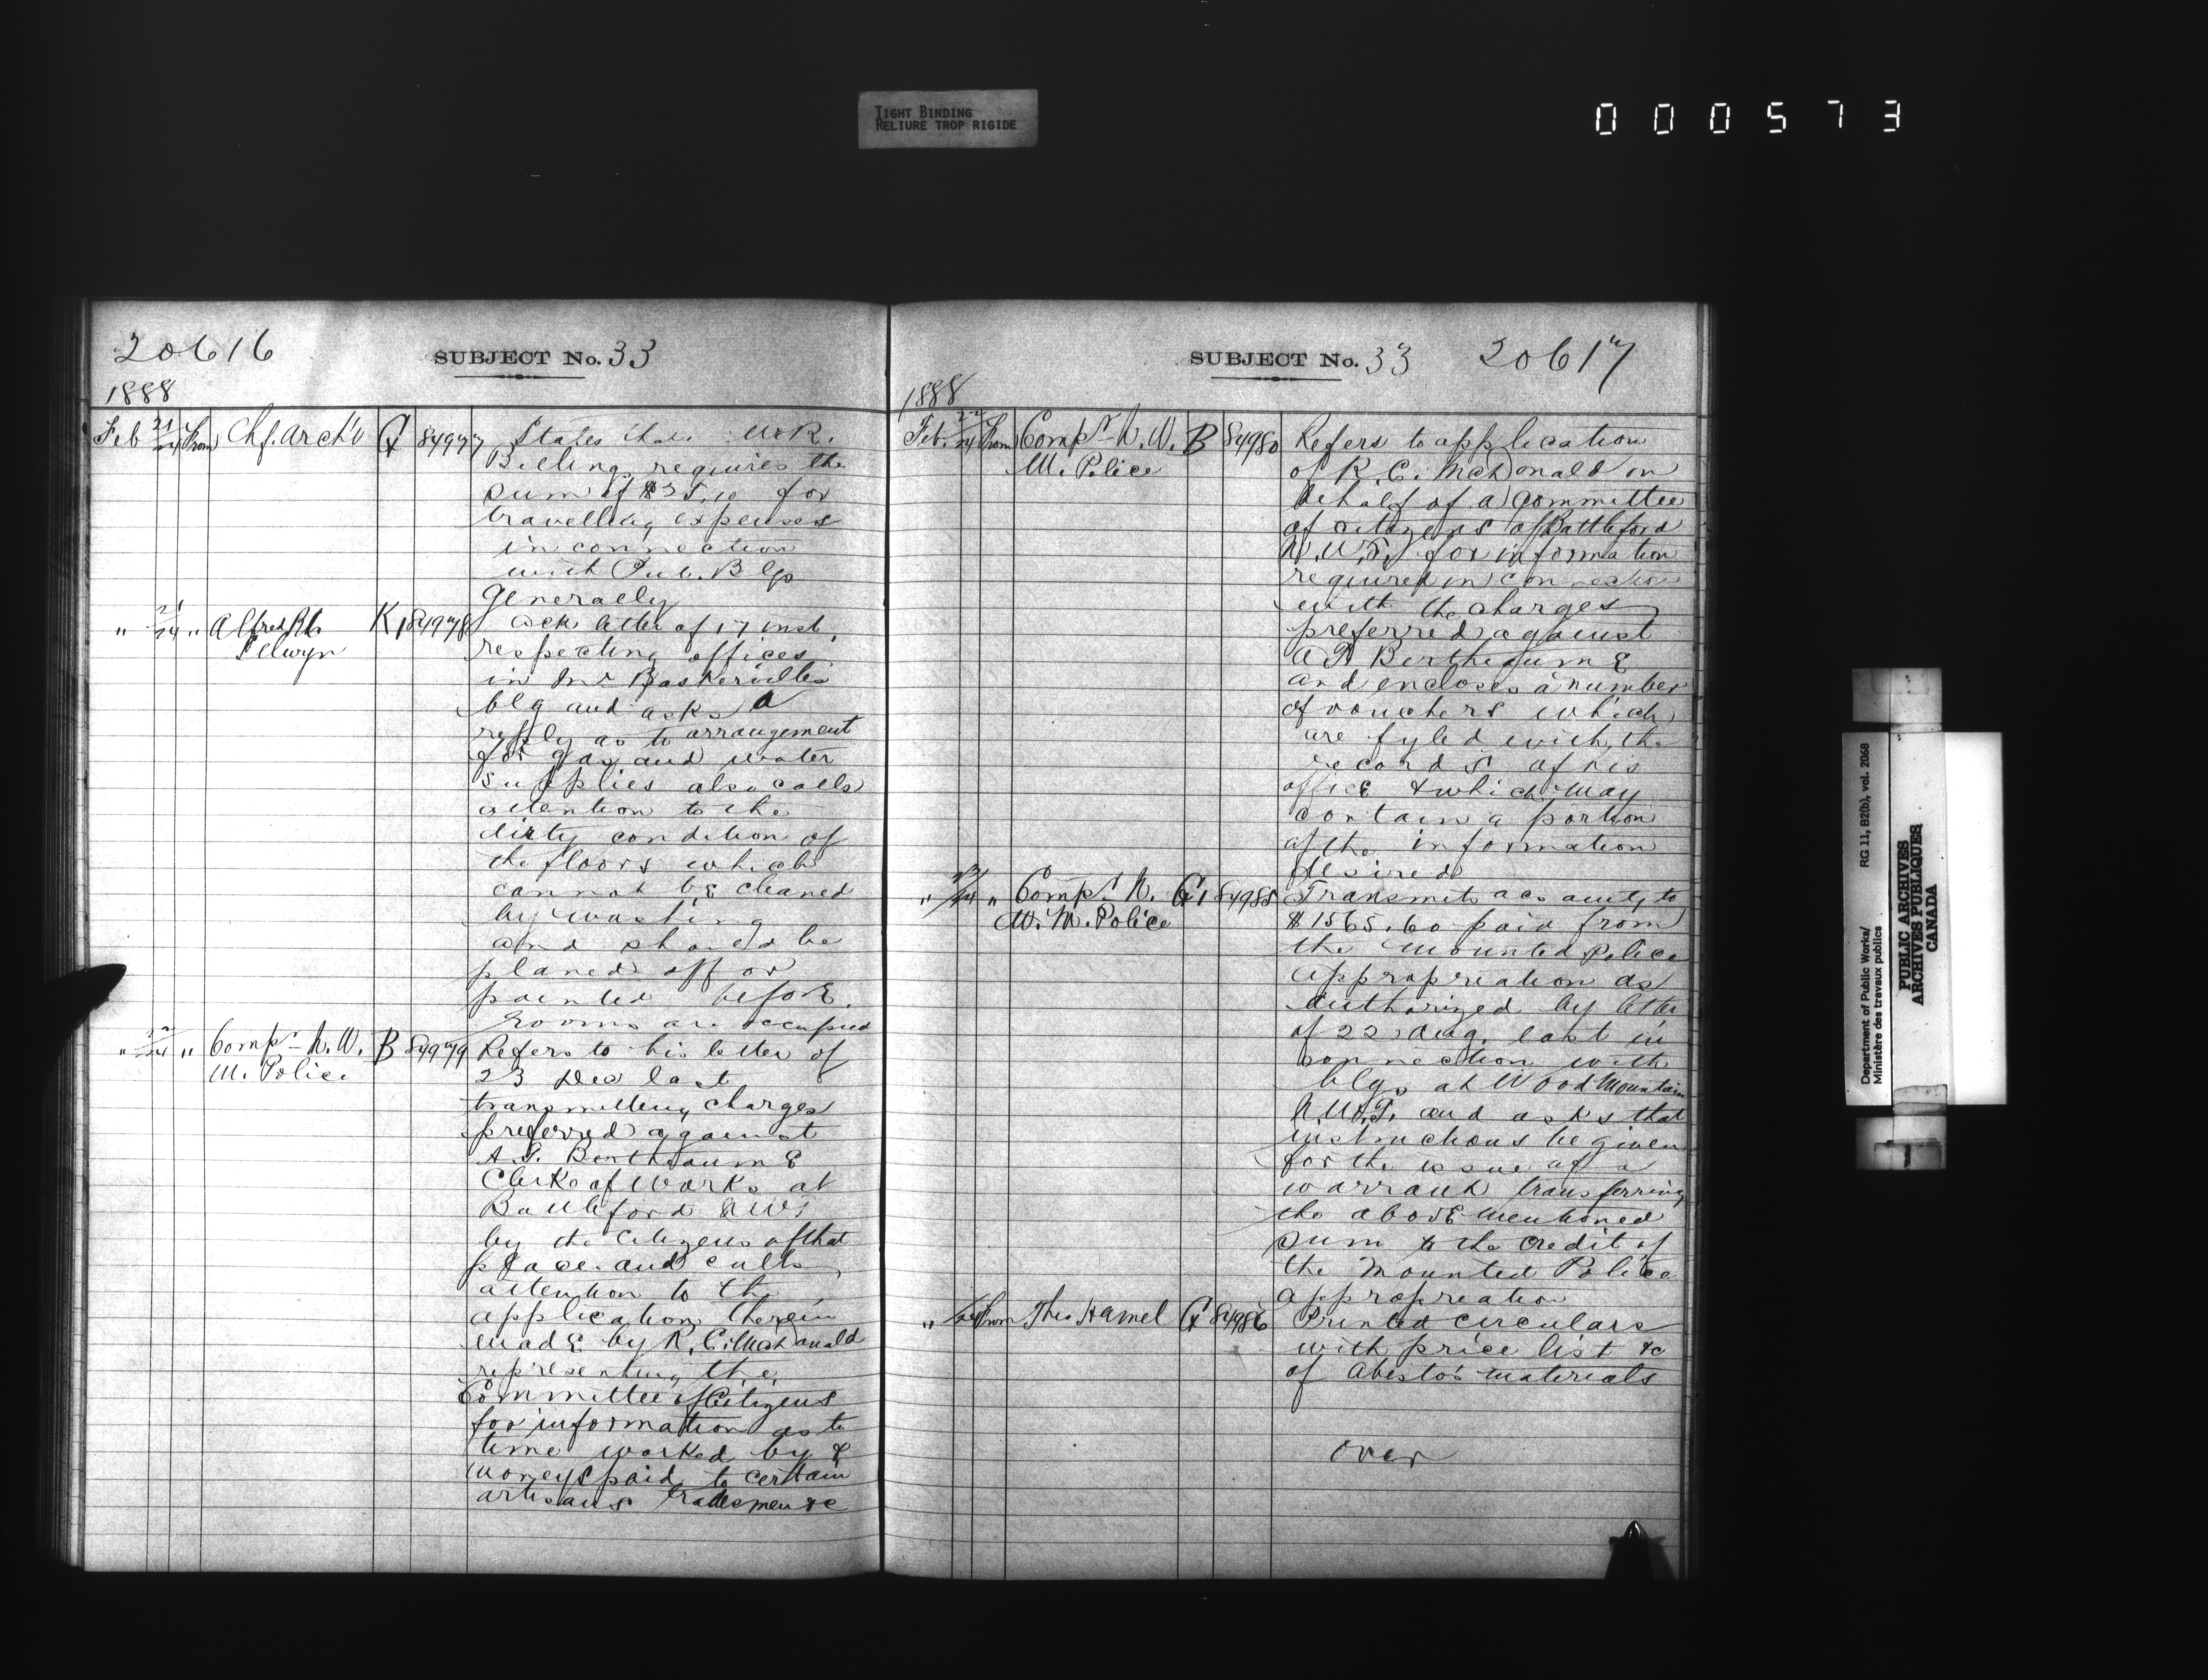 TIGHT BINDING
RELIURE TROP RIGIDE
000573
20616
SUBJECT No. 33
1888
Feb 21/24 From Chf. Arch't G 84977 States that W. R.
Billing requires the
sum of $35.10 for
travelling expenses
in connection
with Pub. Blgs
Generally
" 21/24 " Alfred R C K1 84978 Ack letter of 17 inst.
Selwyn respecting offices
in Mr Baskerville's
blg and asks a
reply as to arrangement
for gas and water
supplies also calls
attention to the
dirty condition of
the floors which
cannot be cleaned
by washing
and should be
planed off or
painted before
rooms are occupied
" 22/24 " Compr N. W. B 84979 Refers to his letter of
M. Police 23 Dec last
transmitting charges
preferred against
A. T. Berthiaume
Clerk of Works at
Battleford NWT
by the Citizens of that
place and calls
attention to the
application therein
made by R. C. MacDonald
representing the
Committee of Citizens
for information as to
time worked by &
moneys paid to certain
artisans tradesmen &c
SUBJECT No. 33 20617
1888
Feb. 22/24 From Compr N. W. B 84980 Refers to application
M. Police of R. C. McDonald on
behalf of a committee
of citizens of Battleford
N.W.T. for information
required in connection
with the charges
preferred against
A T. Berthiaume
and encloses a number
of vouchers which
are fyled with the
records of his
office & which may
contain a portion
of the information
desired
" 24 " Compr N. G1 84985 Transmits acs amtg to
W. M. Police $1565.60 paid from
the Mounted Police
appropriation as
authorized by letter
of 22 Aug. last in
connection with
blgs at Wood Mountain
N.W.T. and asks that
instructions be given
for the issue of a
warrant transferring
the above mentioned
sum to the credit of
the Mounted Police
appropriation
" 24 From Theo Hamel G 84986 Printed circulars
with price list &c
of Abestos materials
over
Department of Public Works/ RG 11, B2(b), vol. 2068
Ministère des travaux publics
PUBLIC ARCHIVES
ARCHIVES PUBLIQUES
CANADA